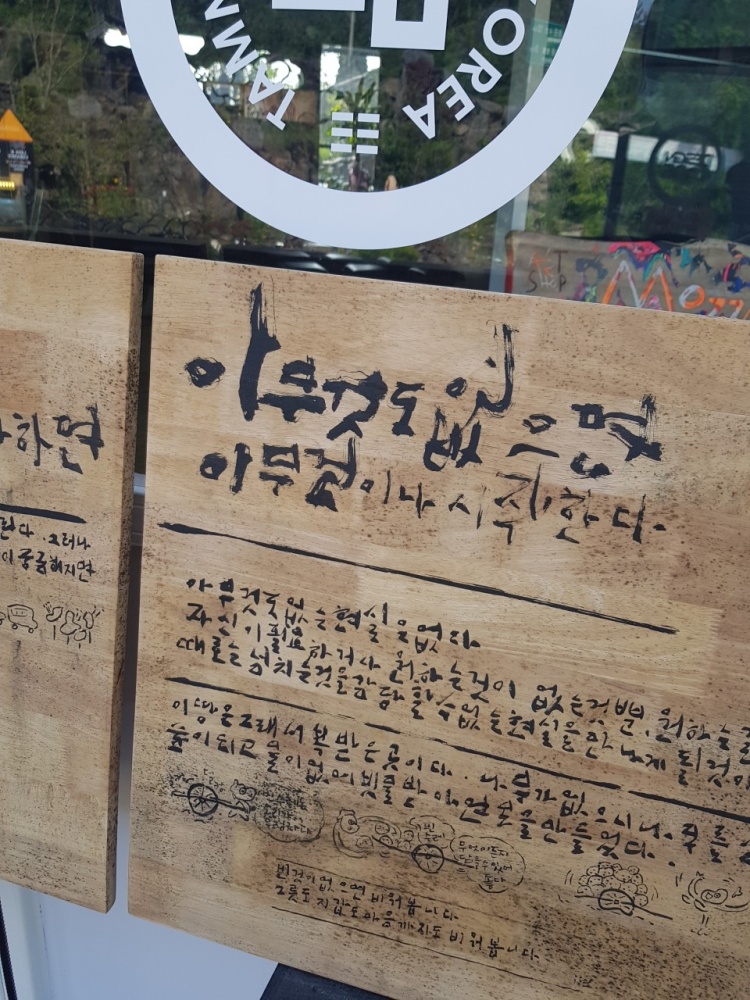 TAMN
KOREA
라하면
된다. 그러나
이 궁금해지면
아무것도 없으면
아무것이나 시작한다.
아무것도 없는 현실은 없다
자신이 필요하거나 원하는 것이 없는 것뿐, 원하는
때로는 넘치는 것을 감당할 수 없는 현실을 만나게 될 것이
이 땅은 그래서 복 받은 곳이다. 나무가 없으시니,
숲이 되고 물이 없어 빗물 받아 연못을 만들었다.
무엇이든지
담을수있어
좋다
빈 것이 없으면 비워봅니다.
그릇도 지갑도 마음까지도 비워봅니다.